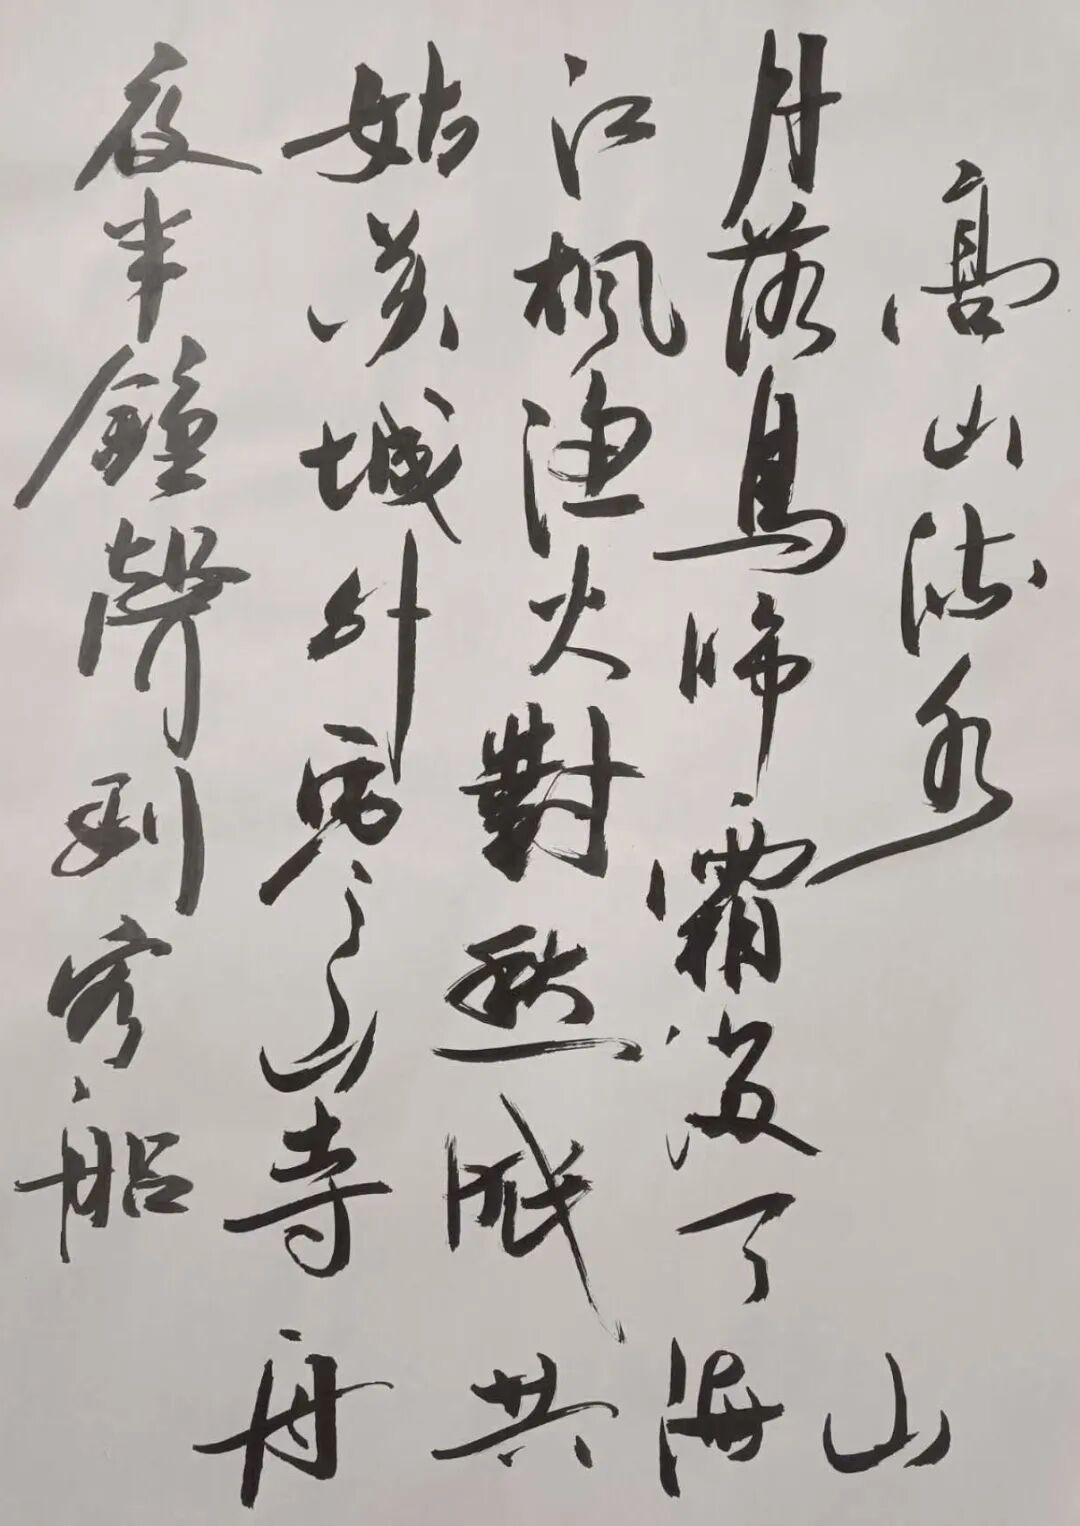 高山流水
月落烏啼霜滿天
江枫渔火對愁眠
姑苏城外寒山寺
夜半鐘聲到客船
山海共舟